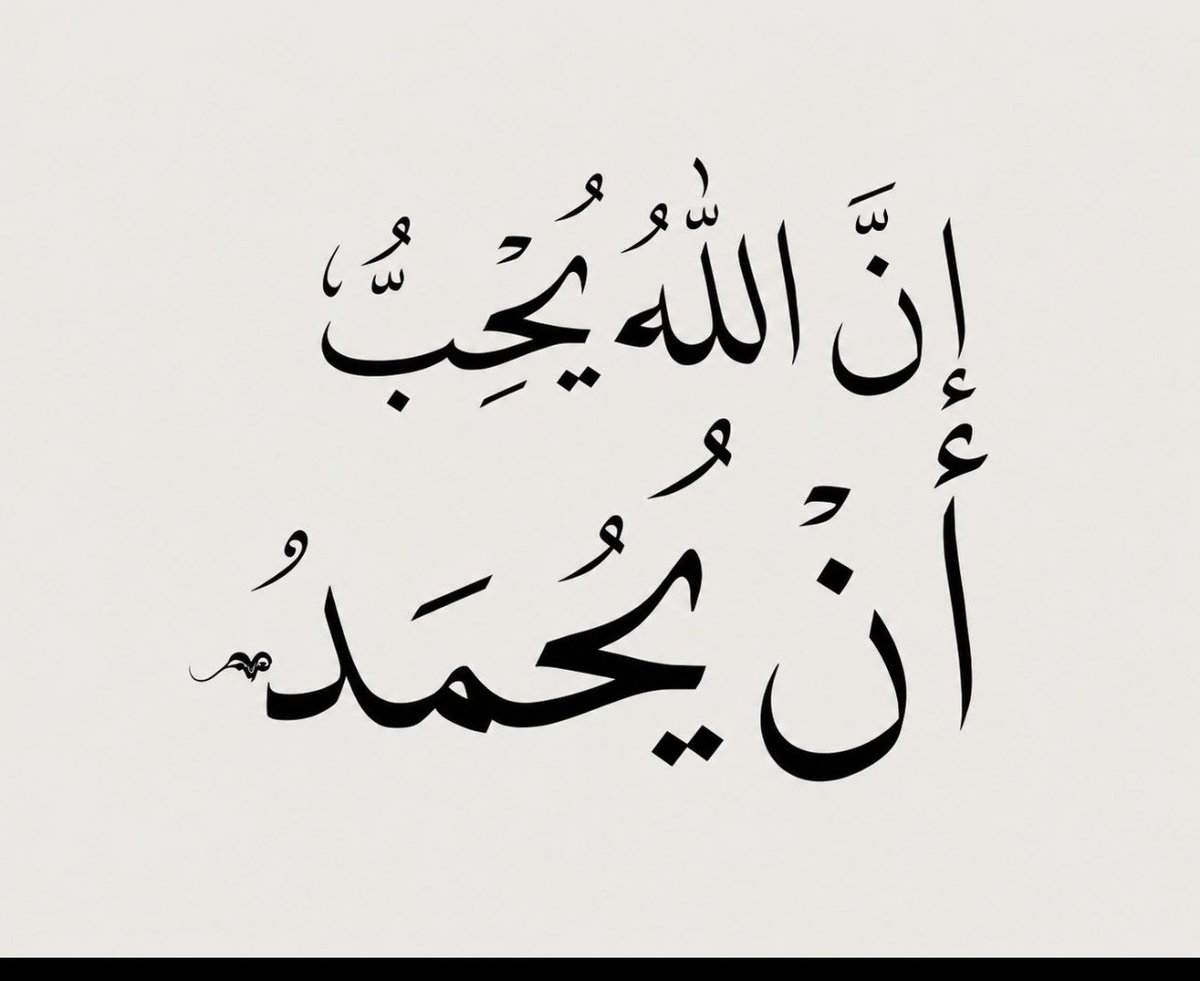 إِنَّ اللّٰهُ يُحِبُّ
أَنْ يُحمَدُ